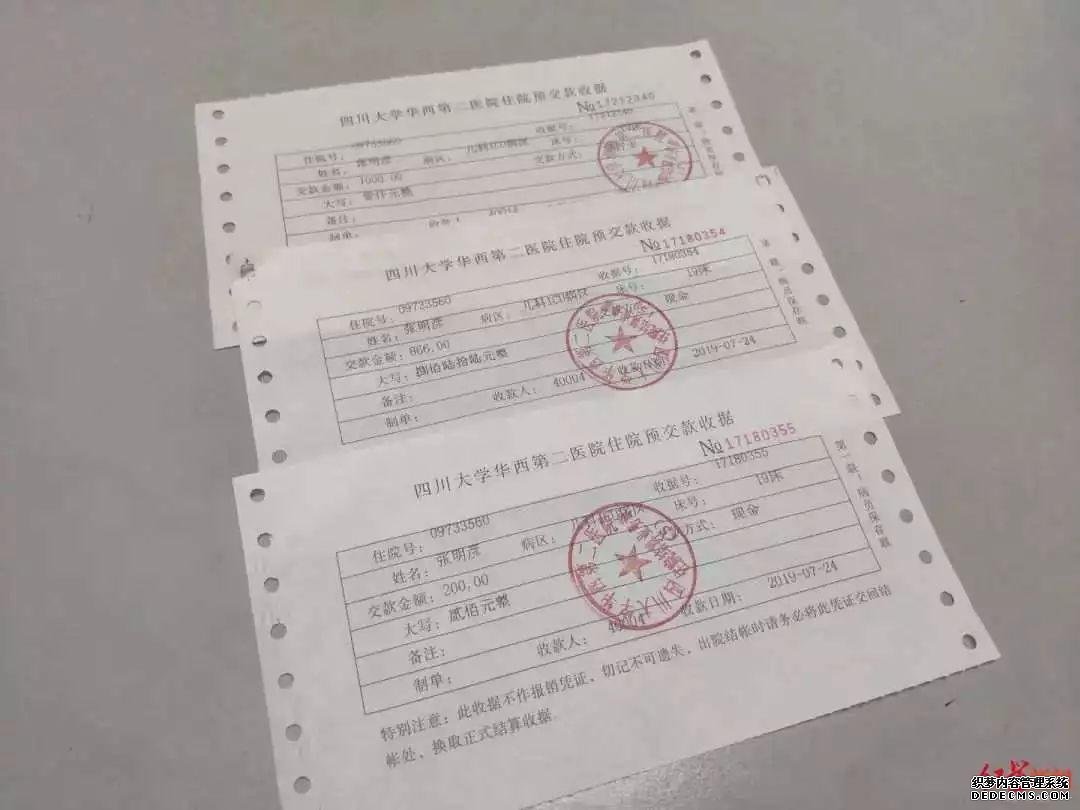 四川大学华西第二医院住院预交款收据
№17212340
住院号： 09733560 收据号： 17212340
姓名： 张明彦 病区： 儿科ICU病区 床号：
交款金额： 1000.00 交款方式：
大写： 壹仟元整
备注：
制单：
四川大学华西第二医院住院预交款收据
№17180354
住院号： 09733560 收据号： 17180354
姓名： 张明彦 病区： 儿科ICU病区 床号： 19床
交款金额： 866.00 现金
大写： 捌佰陆拾陆元整
备注：
制单： 收款人： 40004 收款日期： 2019-07-24
第一联：病员保存联
四川大学华西第二医院住院预交款收据
№17180355
住院号： 09733560 收据号： 17180355
姓名： 张明彦 病区： 儿科ICU病区 床号： 19床
交款金额： 200.00 方式： 现金
大写： 贰佰元整
备注：
制单： 收款人： 40004 收款日期： 2019-07-24
第一联：病员保存联
特别注意：此收据不作报销凭证，切记不可遗失，出院结帐时请务必将此凭证交回结
帐处，换取正式结算收据
织梦内容管理系统
DEDECMS.COM